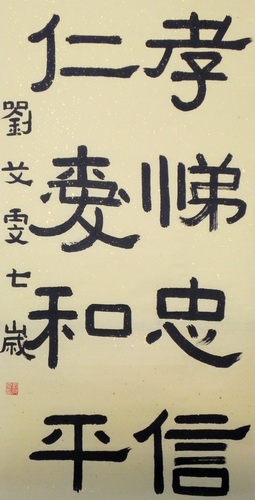 孝悌忠信
仁愛和平
劉艾雯七歲